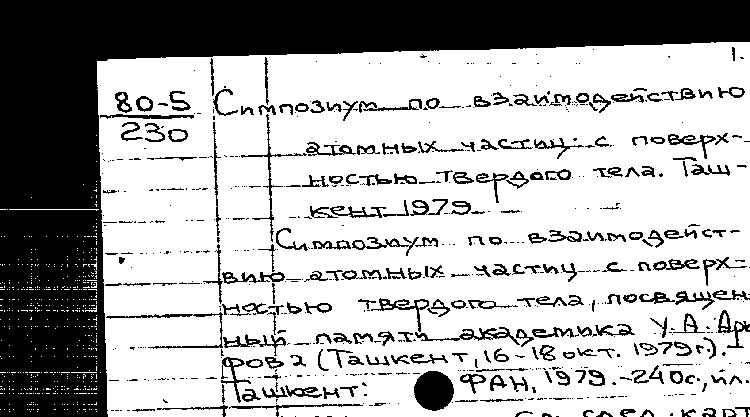 1.
80-5 Симпозиум по взаимодействию
230
атомных частиц с поверх-
ностью твердого тела. Таш-
кент 1979
Симпозиум по взаимодейст-
вию атомных частиц с поверх-
ностью твердого тела, посвящен
ный памяти академика У.А. Ари
фова (Ташкент, 16-18 окт. 1979г.).
Ташкент: ФАН, 1979.-240с., ил.